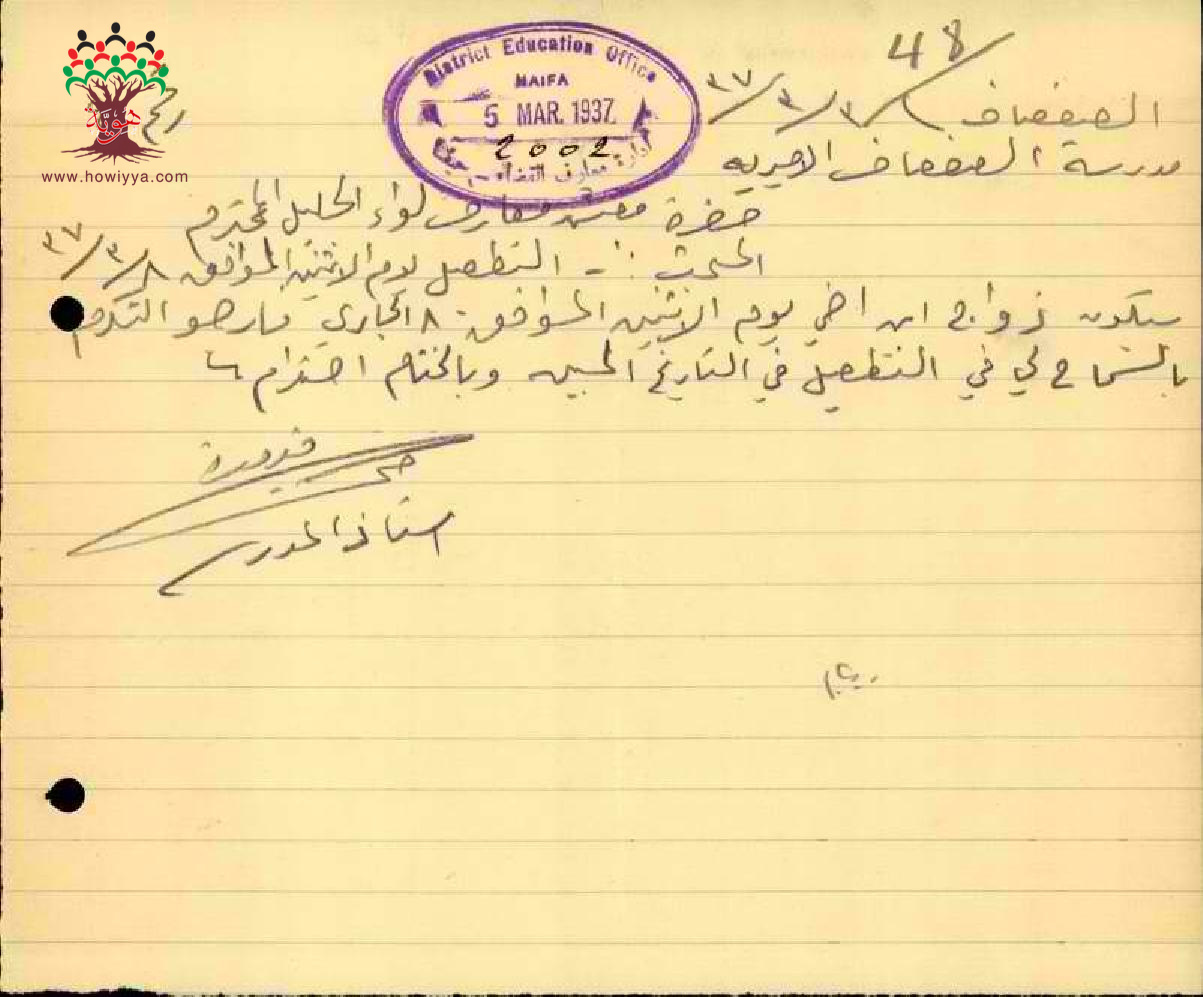 48
الصفصاف ٣٧/٣/٢
مدرسة الصفصاف الاميرية
حضرة مفتش معارف لواء الجليل المحترم
المبحث :- التعطيل يوم الاثنين الموافق ٣٧/٣/٨
سيكون زواج ابن اخي يوم الاثنين الموافق ٨ الجاري فارجو التكرم
بالسماح لي في التعطيل في التاريخ المبين وبالختام احترام
قدورة
استاذ المدرسة
District Education Office
HAIFA
5 MAR. 1937
2002
ادارة معارف القضاء حيفا
هوية
www.howiyya.com